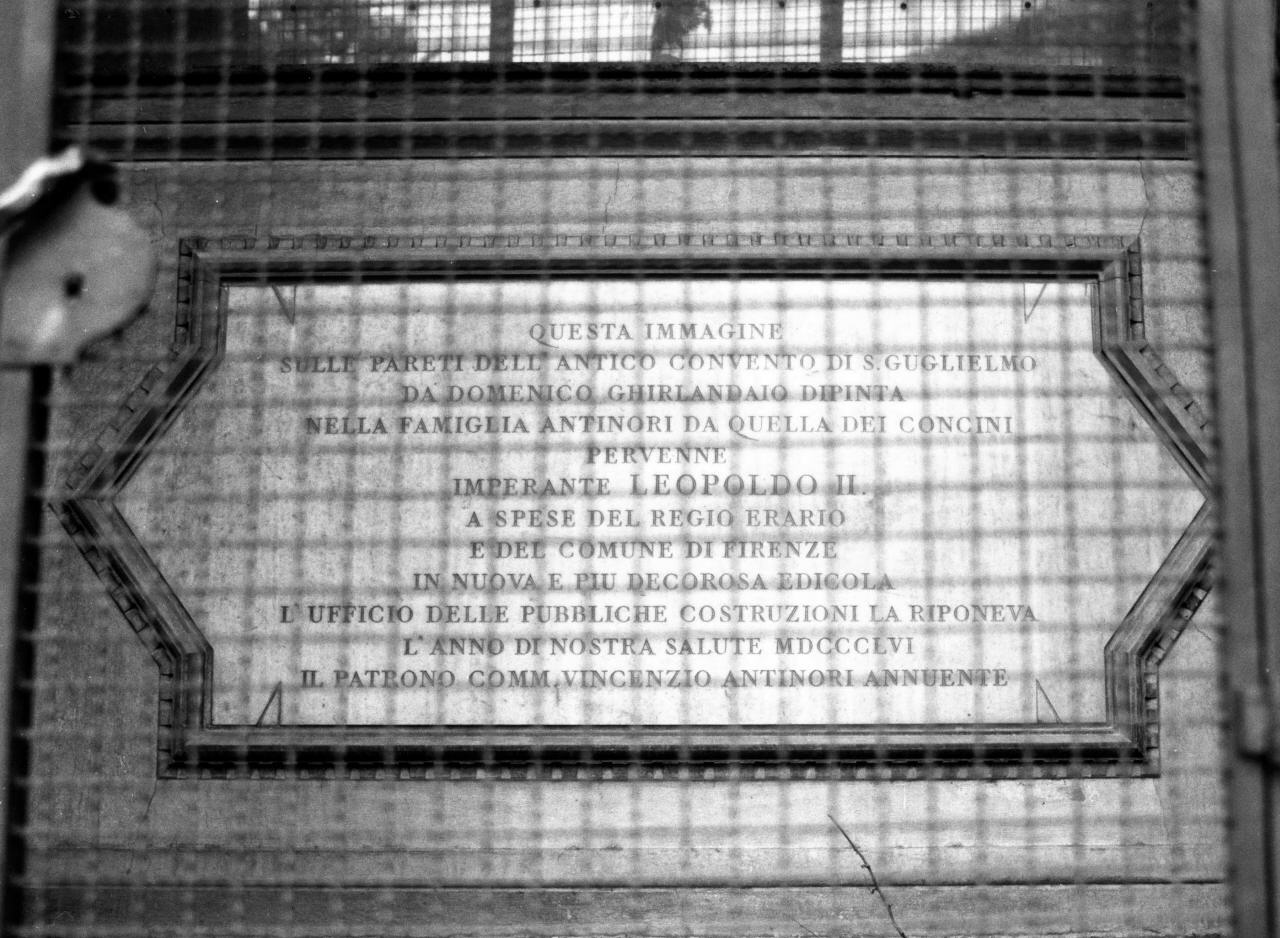 QUESTA IMMAGINE
SULLE PARETI DELL' ANTICO CONVENTO DI S. GUGLIELMO
DA DOMENICO GHIRLANDAIO DIPINTA
NELLA FAMIGLIA ANTINORI DA QUELLA DEI CONCINI
PERVENNE
IMPERANTE LEOPOLDO II.
A SPESE DEL REGIO ERARIO
E DEL COMUNE DI FIRENZE
IN NUOVA E PIU DECOROSA EDICOLA
L' UFFICIO DELLE PUBBLICHE COSTRUZIONI LA RIPONEVA
L' ANNO DI NOSTRA SALUTE MDCCCLVI
IL PATRONO COMM. VINCENZIO ANTINORI ANNUENTE